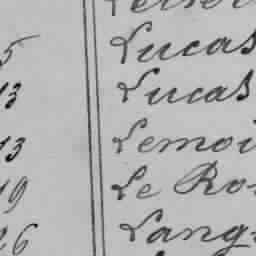 5 Lucas
13 Lucas
13 Lemoi
19 Le Ro
26 Lang